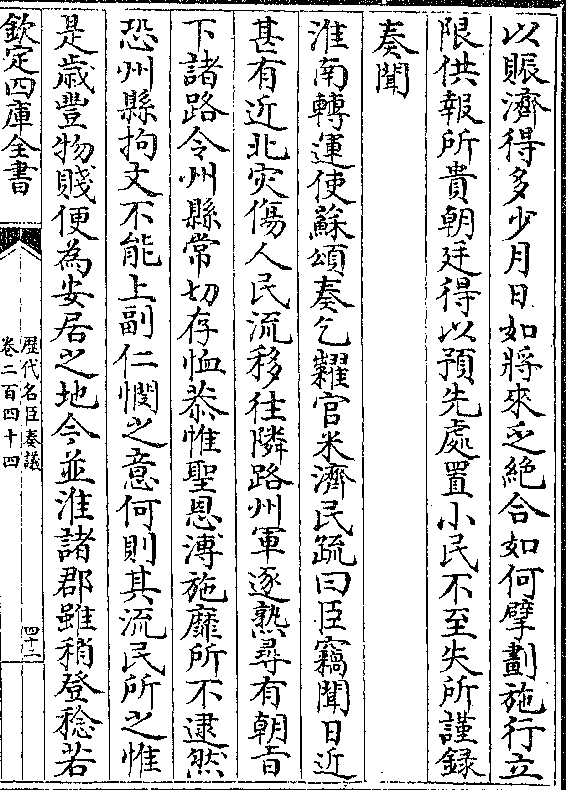 以賑濟得多少月日如將來乏絶合如何擘劃施行立
限供報所貴朝廷得以預先處置小民不至失所謹録
奏聞
淮南轉運使蘇頌奏乞糶官米濟民䟽曰臣竊聞日近
甚有近北灾傷人民流移往隣路州軍逐熟尋有朝㫖
下諸路令州縣常切存恤㳟惟聖恩溥施靡所不逮然
恐州縣拘文不能上副仁憫之意何則其流民所之惟
是歳豐物賤便為安居之地今並淮諸郡雖稍登稔若
欽定四庫全書
歴代名臣奏議
卷二百四十四
四十二